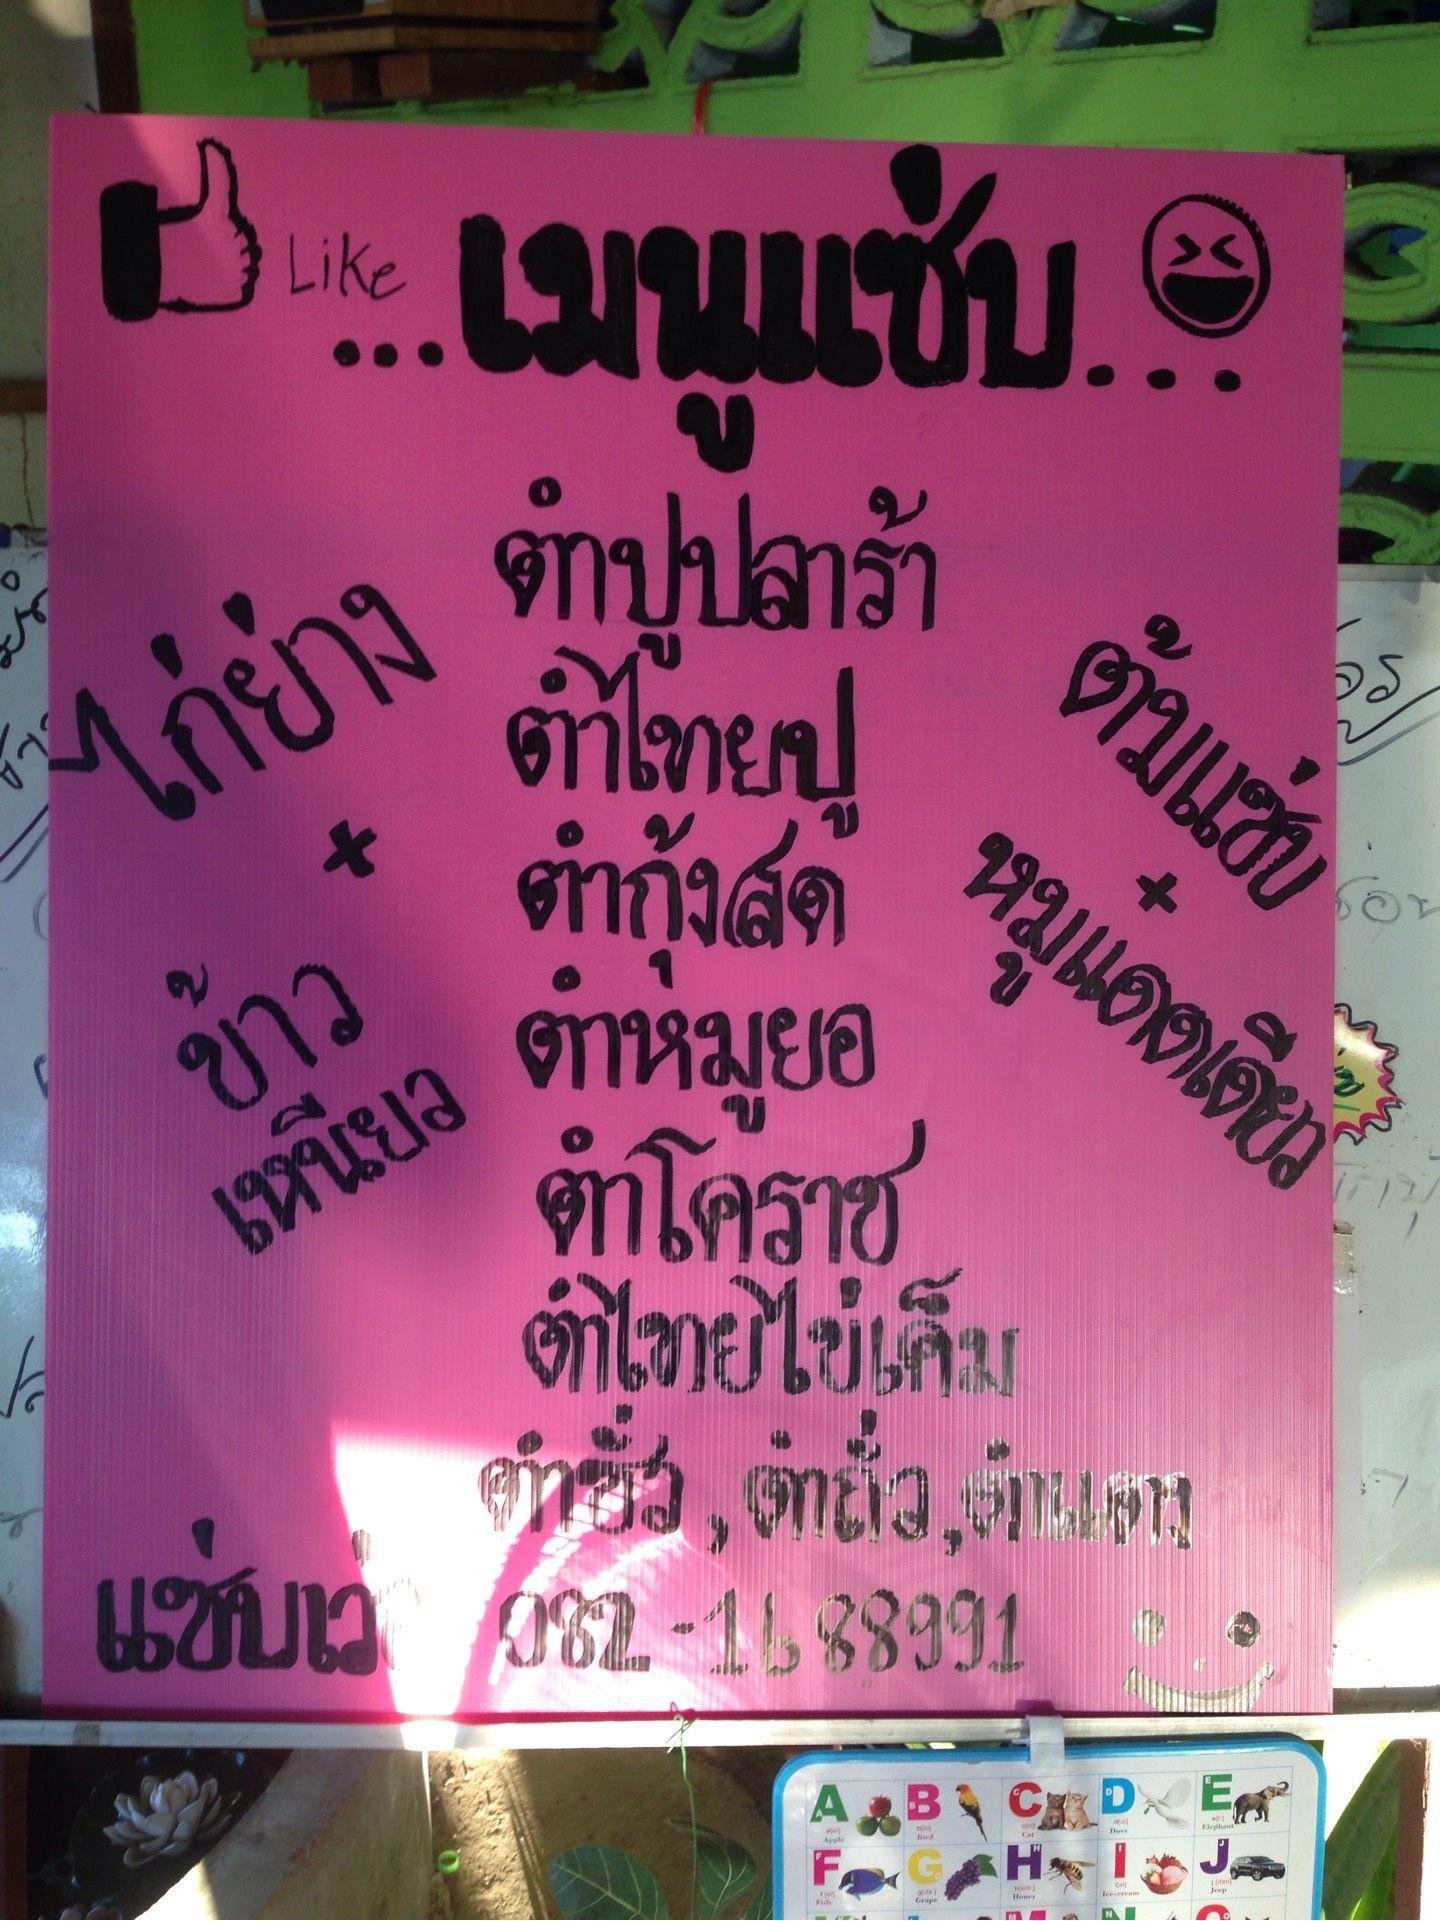 Like
...เมนูแซ่บ...
ตำปูปลาร้า
ตำไทยปู
ตำกุ้งสด
ตำหมูยอ
ตำโคราช
ตำไทยไข่เค็ม
ตำซั่ว, ตำถั่ว, ตำแตง
ไก่ย่าง
+
ข้าว
เหนียว
ต้มแซ่บ
+
หมูแดดเดียว
แซ่บเว่อ 082-1688991
A B C D E
Apple Bird Cat Dove Elephant
F G H I J
Fish Grape Honey Ice-cream Jeep